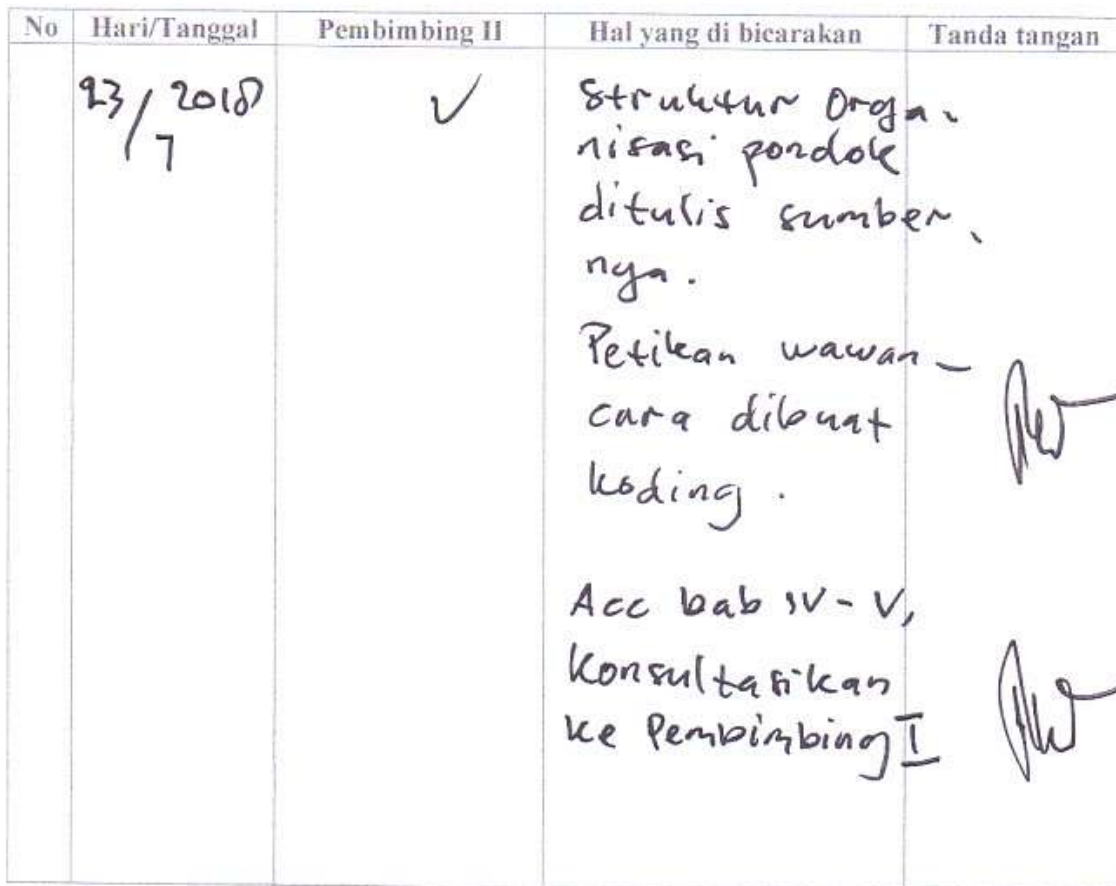 No Hari/Tanggal Pembimbing II Hal yang di bicarakan Tanda tangan
23/7 2018 V Struktur Orga-
nisasi pondok
ditulis sumber-
nya.
Petikan wawan-
cara dibuat
koding.
Acc bab IV - V,
Konsultasikan
ke Pembimbing I